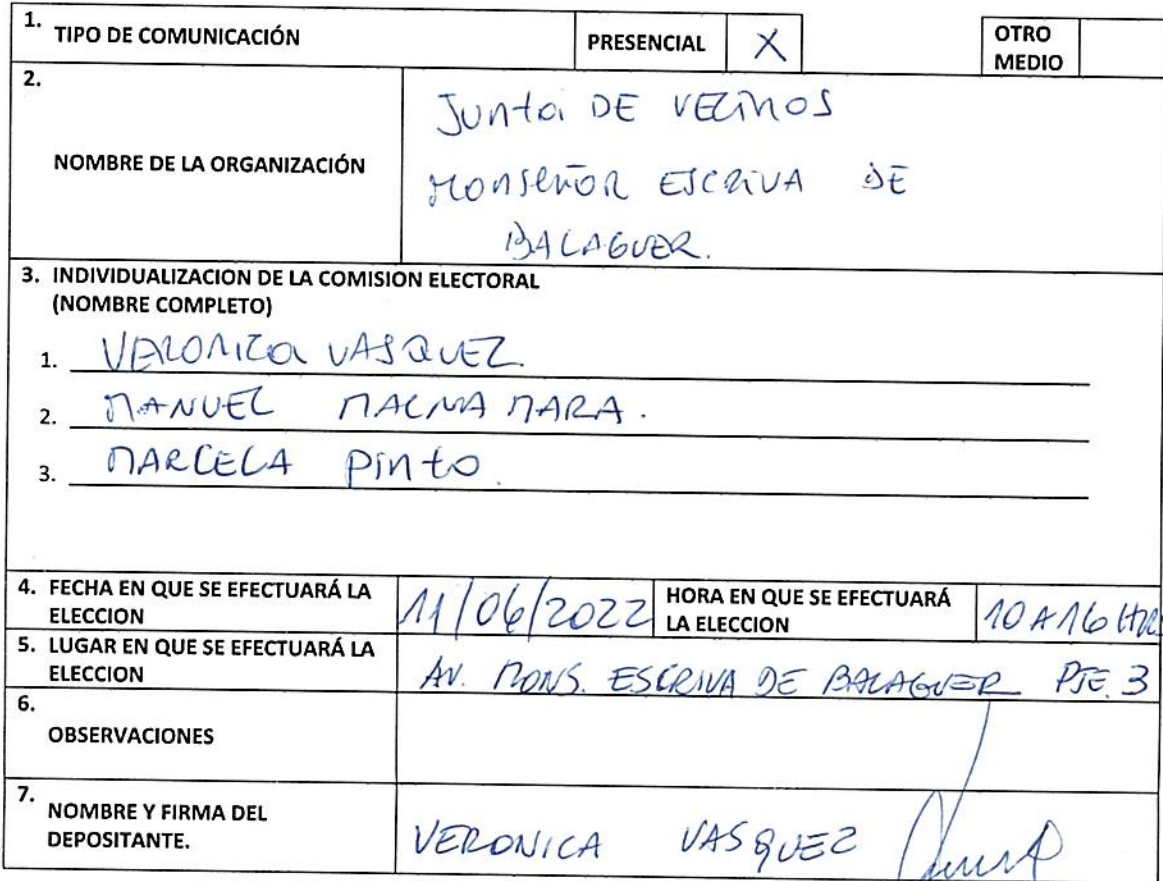 1. TIPO DE COMUNICACIÓN PRESENCIAL X OTRO MEDIO
2. NOMBRE DE LA ORGANIZACIÓN
Junta DE VECINOS
MONSEÑOR ESCRIVA DE
BALAGUER.
3. INDIVIDUALIZACION DE LA COMISION ELECTORAL
(NOMBRE COMPLETO)
1. VERONICA VASQUEZ.
2. MANUEL MALMA MARA.
3. MARCELA PINTO.
4. FECHA EN QUE SE EFECTUARÁ LA ELECCION 11/06/2022 HORA EN QUE SE EFECTUARÁ LA ELECCION 10 A 16 HRS
5. LUGAR EN QUE SE EFECTUARÁ LA ELECCION AV. MONS. ESCRIVA DE BALAGUER PJE. 3
6. OBSERVACIONES
7. NOMBRE Y FIRMA DEL DEPOSITANTE. VERONICA VASQUEZ